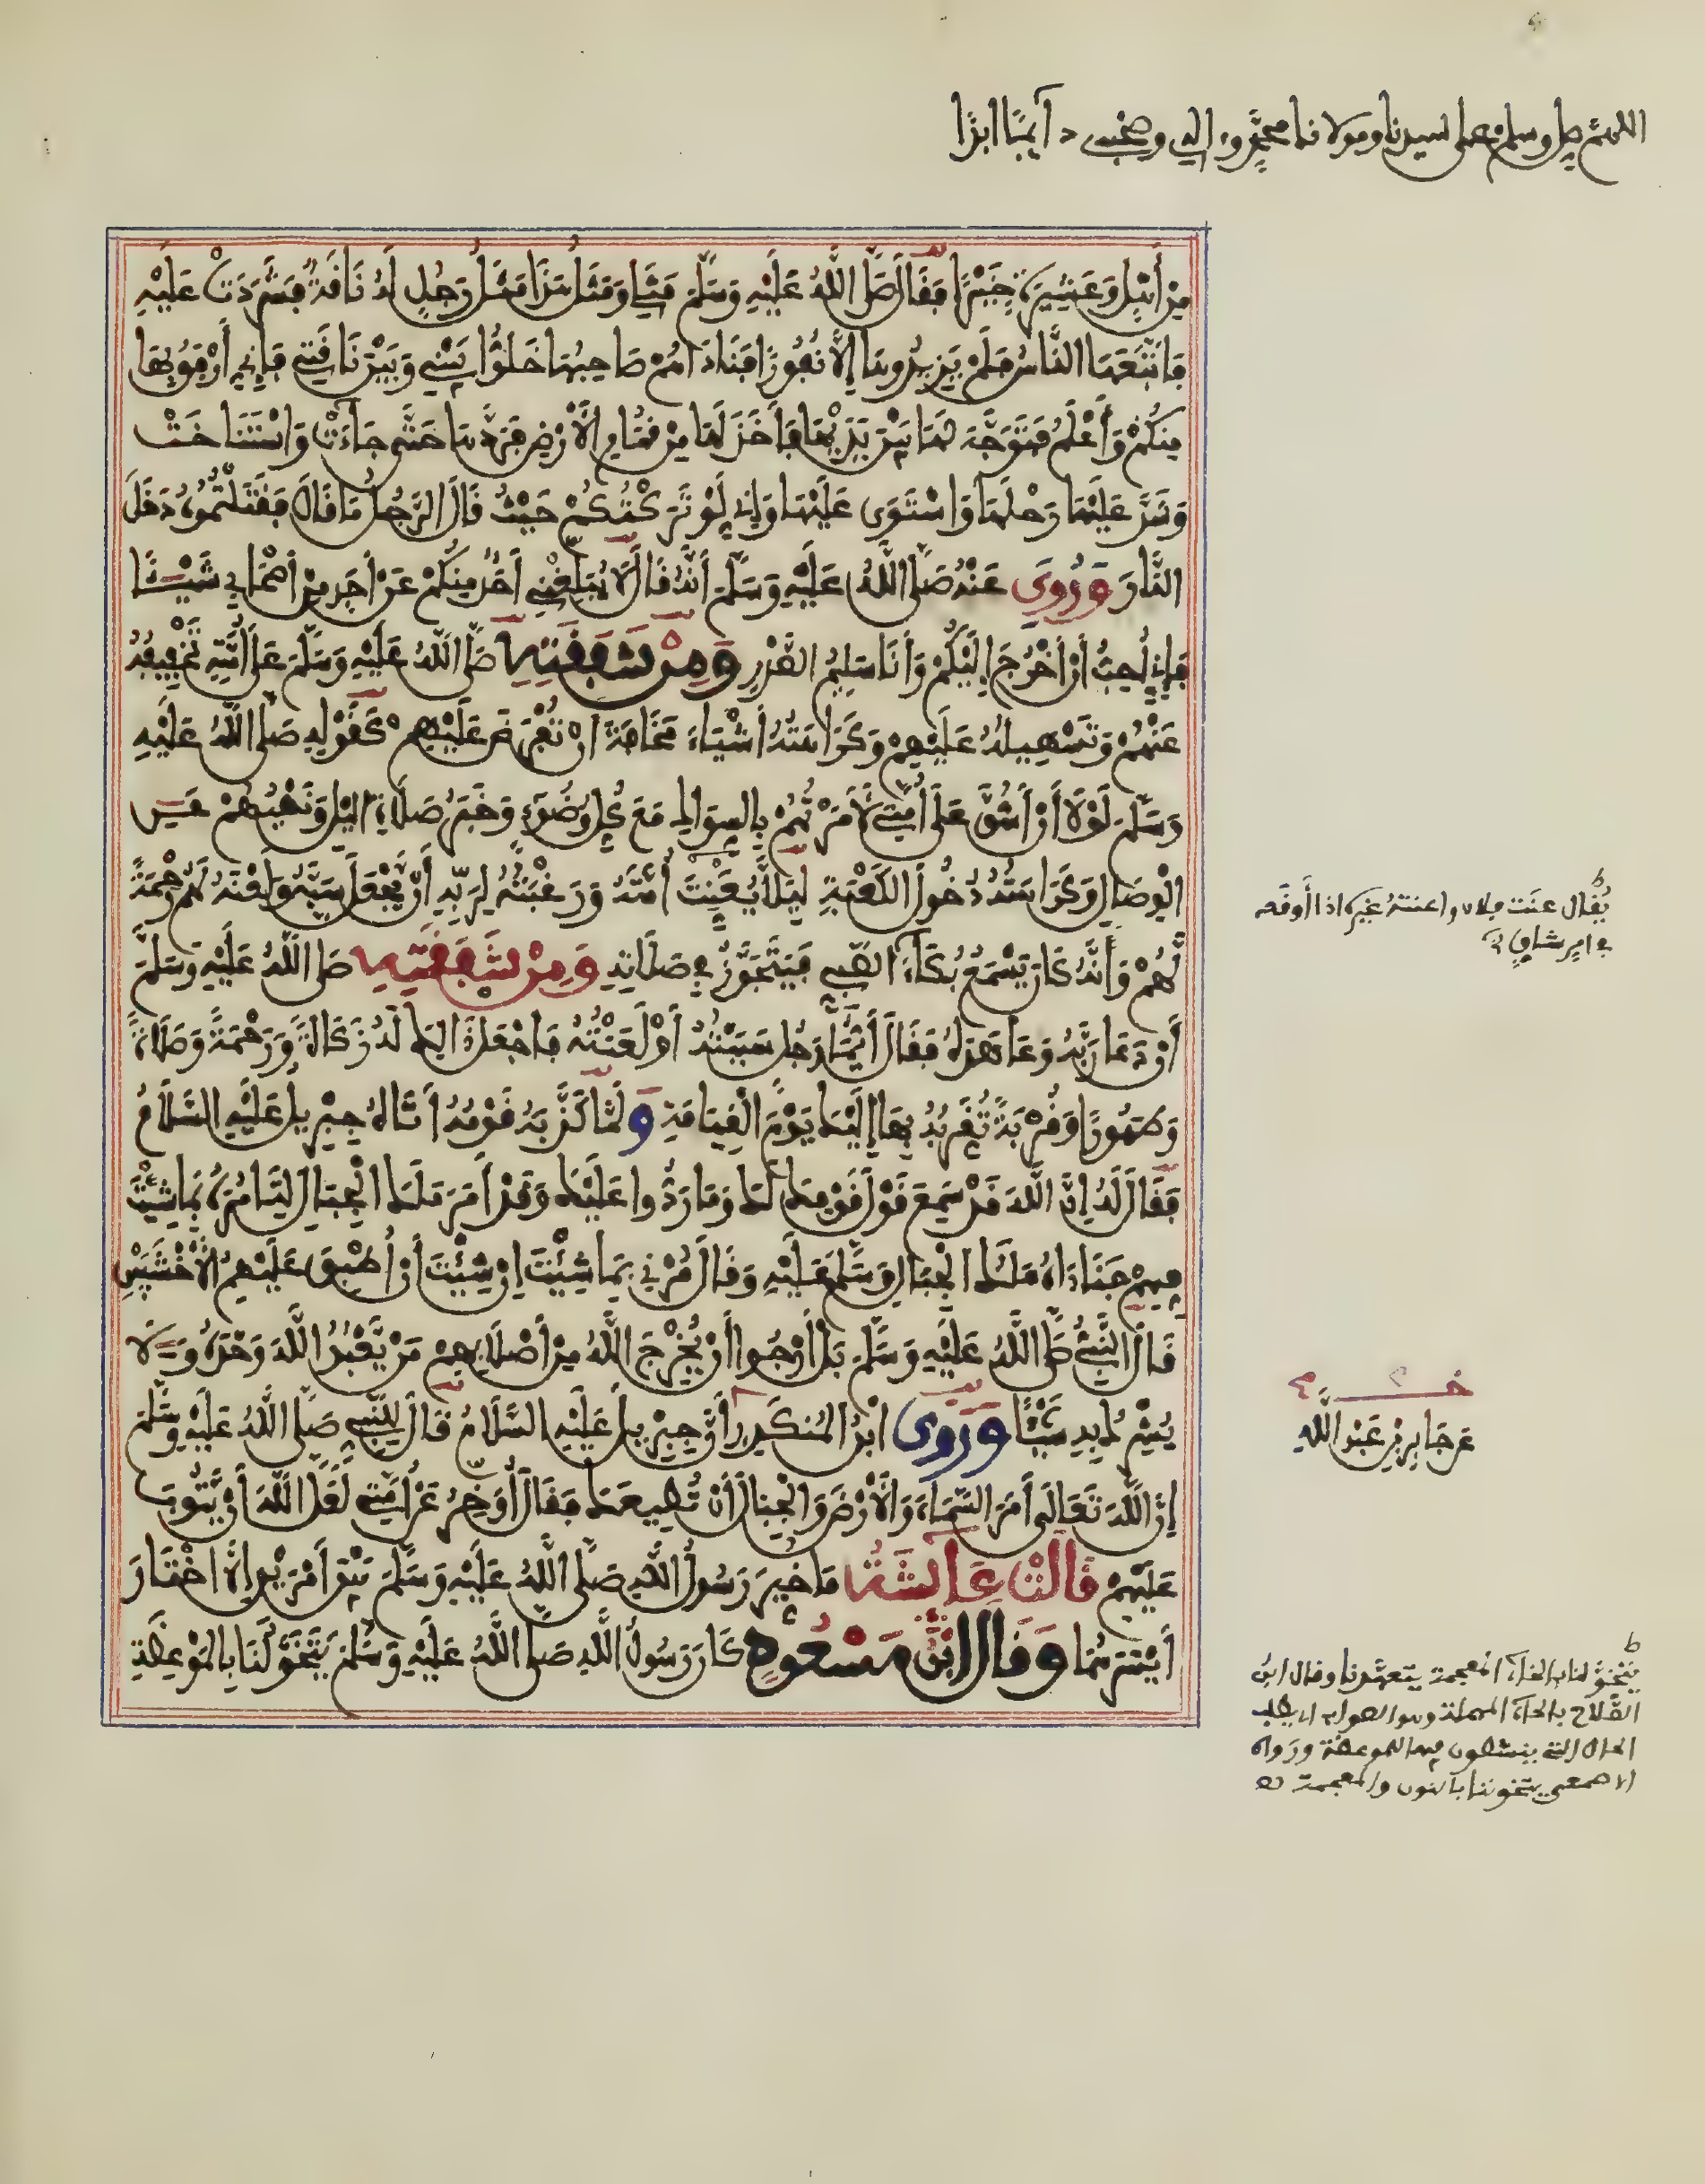 اللهم صل وسلم على سيدنا ومولانا محمد وءاله وصحبه دآيما ابدا
مِنْ أَهْلٍ وَعَشِيرَةٍ خَيْرًا فَقَالَ صَلَّى اللَّهُ عَلَيْهِ وَسَلَّمَ مَثَلِي وَمَثَلُ هَذَا مَثَلُ رَجُلٍ لَهُ نَاقَةٌ فَشَرَدَتْ عَلَيْهِ
فَاتَّبَعَهَا النَّاسُ فَلَمْ يَزِيدُوهَا إِلَّا نُفُورًا فَنَادَاهُمْ صَاحِبُهَا خَلُّوا بَيْنِي وَبَيْنَ نَاقَتِي فَإِنِّي أَرْفَقُ بِهَا
مِنْكُمْ وَأَعْلَمُ فَتَوَجَّهَ لَهَا بَيْنَ يَدَيْهَا فَأَخَذَ لَهَا مِنْ قُمَامِ الْأَرْضِ فَرَدَّهَا حَتَّى جَاءَتْ وَاسْتَنَاخَتْ
وَشَدَّ عَلَيْهَا رَحْلَهَا وَاسْتَوَى عَلَيْهَا وَإِنِّي لَوْ تَرَكْتُكُمْ حَيْثُ قَالَ الرَّجُلُ مَا قَالَ فَقَتَلْتُمُوهُ دَخَلَ
النَّارَ وَرُوِيَ عَنْهُ صَلَّى اللَّهُ عَلَيْهِ وَسَلَّمَ أَنَّهُ قَالَ لَا يُبَلِّغْنِي أَحَدٌ مِنْكُمْ عَنْ أَحَدٍ مِنْ أَصْحَابِي شَيْئًا
فَإِنِّي أُحِبُّ أَنْ أَخْرُجَ إِلَيْكُمْ وَأَنَا سَلِيمُ الصَّدْرِ وَمِنْ شَفَقَتِهِ صَلَّى اللَّهُ عَلَيْهِ وَسَلَّمَ عَلَى أُمَّتِهِ تَخْفِيفُهُ
عَنْهُمْ وَتَسْهِيلُهُ عَلَيْهِمْ وَكَرَاهَتُهُ أَشْيَاءَ مَخَافَةَ أَنْ تُفْرَضَ عَلَيْهِمْ كَقَوْلِهِ صَلَّى اللَّهُ عَلَيْهِ
وَسَلَّمَ لَوْلَا أَنْ أَشُقَّ عَلَى أُمَّتِي لَأَمَرْتُهُمْ بِالسِّوَاكِ مَعَ كُلِّ وُضُوءٍ وَخَبَرُ صَلَاةِ اليْلِ وَنَهْيُهُمْ عَنِ
الْوِصَالِ وَكَرَاهَتُهُ دُخُولَ الكَعْبَةِ لِيَلَّا يُعَنِّتَ أُمَّتَهُ وَرَغْبَتُهُ لِرَبِّهِ أَنْ يَجْعَلَ سَبَّهُ وَلَعْنَهُ لَهُمْ رَحْمَةً
لَهُمْ وَأَنَّهُ كَانَ يَسْمَعُ بُكَآءَ الصَّبِيِّ فَيَتَجَوَّزُ فِي صَلَاتِهِ وَمِنْ شَفَقَتِهِ صَلَّى اللَّهُ عَلَيْهِ وَسَلَّمَ
أَنْ دَعَا رَبَّهُ وَعَاهَدَهُ فَقَالَ أَيُّمَا رَجُلٍ سَبَبْتُهُ أَوْ لَعَنْتُهُ فَاجْعَلْ ذَلِكَ لَهُ زَكَاةً وَرَحْمَةً وَصَلَاةً
وَطَهُورًا وَقُرْبَةً تُقَرِّبُهُ بِهَا إِلَيْكَ يَوْمَ الْقِيَامَةِ وَلَمَّا كَذَّبَهُ قَوْمُهُ أَتَاهُ جِبْرِيلُ عَلَيْهِ السَّلَامُ
فَقَالَ لَهُ إِنَّ اللَّهَ قَدْ سَمِعَ قَوْلَ قَوْمِكَ لَكَ وَمَا رَدُّوا عَلَيْكَ وَقَدْ أَمَرَ مَلَكَ الْجِبَالِ لِتَأْمُرَهُ بِمَا شِئْتَ
فِيهِمْ فَنَادَاهُ مَلَكُ الْجِبَالِ وَسَلَّمَ عَلَيْهِ وَقَالَ مُرْنِي بِمَا شِئْتَ إِنْ شِئْتَ أَنْ أُطْبِقَ عَلَيْهِمُ الْأَخْشَبَيْنِ
قَالَ النَّبِيُّ صَلَّى اللَّهُ عَلَيْهِ وَسَلَّمَ بَلْ أَرْجُوا أَنْ يُخْرِجَ اللَّهُ مِنْ أَصْلَابِهِمْ مَنْ يَعْبُدُ اللَّهَ وَحْدَهُ وَلَا
يُشْرِكُ بِهِ شَيْئًا وَرَوَى ابْنُ الْمُنْكَدِرِ أَنَّ جِبْرِيلَ عَلَيْهِ السَّلَامُ قَالَ لِلنَّبِيِّ صَلَّى اللَّهُ عَلَيْهِ وَسَلَّمَ
إِنَّ اللَّهَ تَعَالَى أَمَرَ السَّمَاءَ وَالْأَرْضَ وَالْجِبَالَ أَنْ تُطِيعَكَ فَقَالَ أُؤَخِّرُ عَنْ أُمَّتِي لَعَلَّ اللَّهَ أَنْ يَتُوبَ
عَلَيْهِمْ قَالَتْ عَائِشَةُ مَا خُيِّرَ رَسُولُ اللَّهِ صَلَّى اللَّهُ عَلَيْهِ وَسَلَّمَ بَيْنَ أَمْرَيْنِ إِلَّا اخْتَارَ
أَيْسَرَهُمَا وَقَالَ ابْنُ مَسْعُودٍ كَانَ رَسُولُ اللَّهِ صَلَّى اللَّهُ عَلَيْهِ وَسَلَّمَ يَتَخَوَّلُنَا بِالْمَوْعِظَةِ
ط
يُقال عنت فلان واعنته غيره اذا أوقعه
في امر شاق
عن جَابِرِ بْنِ عَبْدِ اللَّهِ
ط
يتخولنا بالخآء المعجمة يتعهدنا وقال ابن
الصَّلاح بالحآء المهملة وهو الصواب اي يطلب
الحال التي ينشطون فيها للموعظة ورواه
الاصمعي يتخوننا بالنون والمعجمة